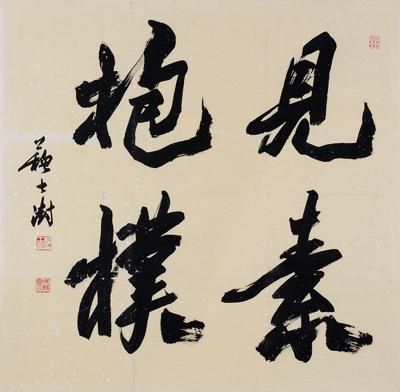 見素
抱樸
蘇士澍